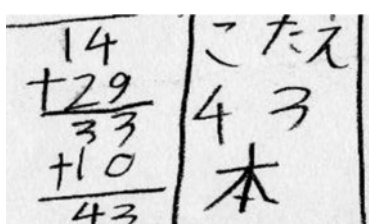 14
+29
33
+10
43
こたえ
43
本